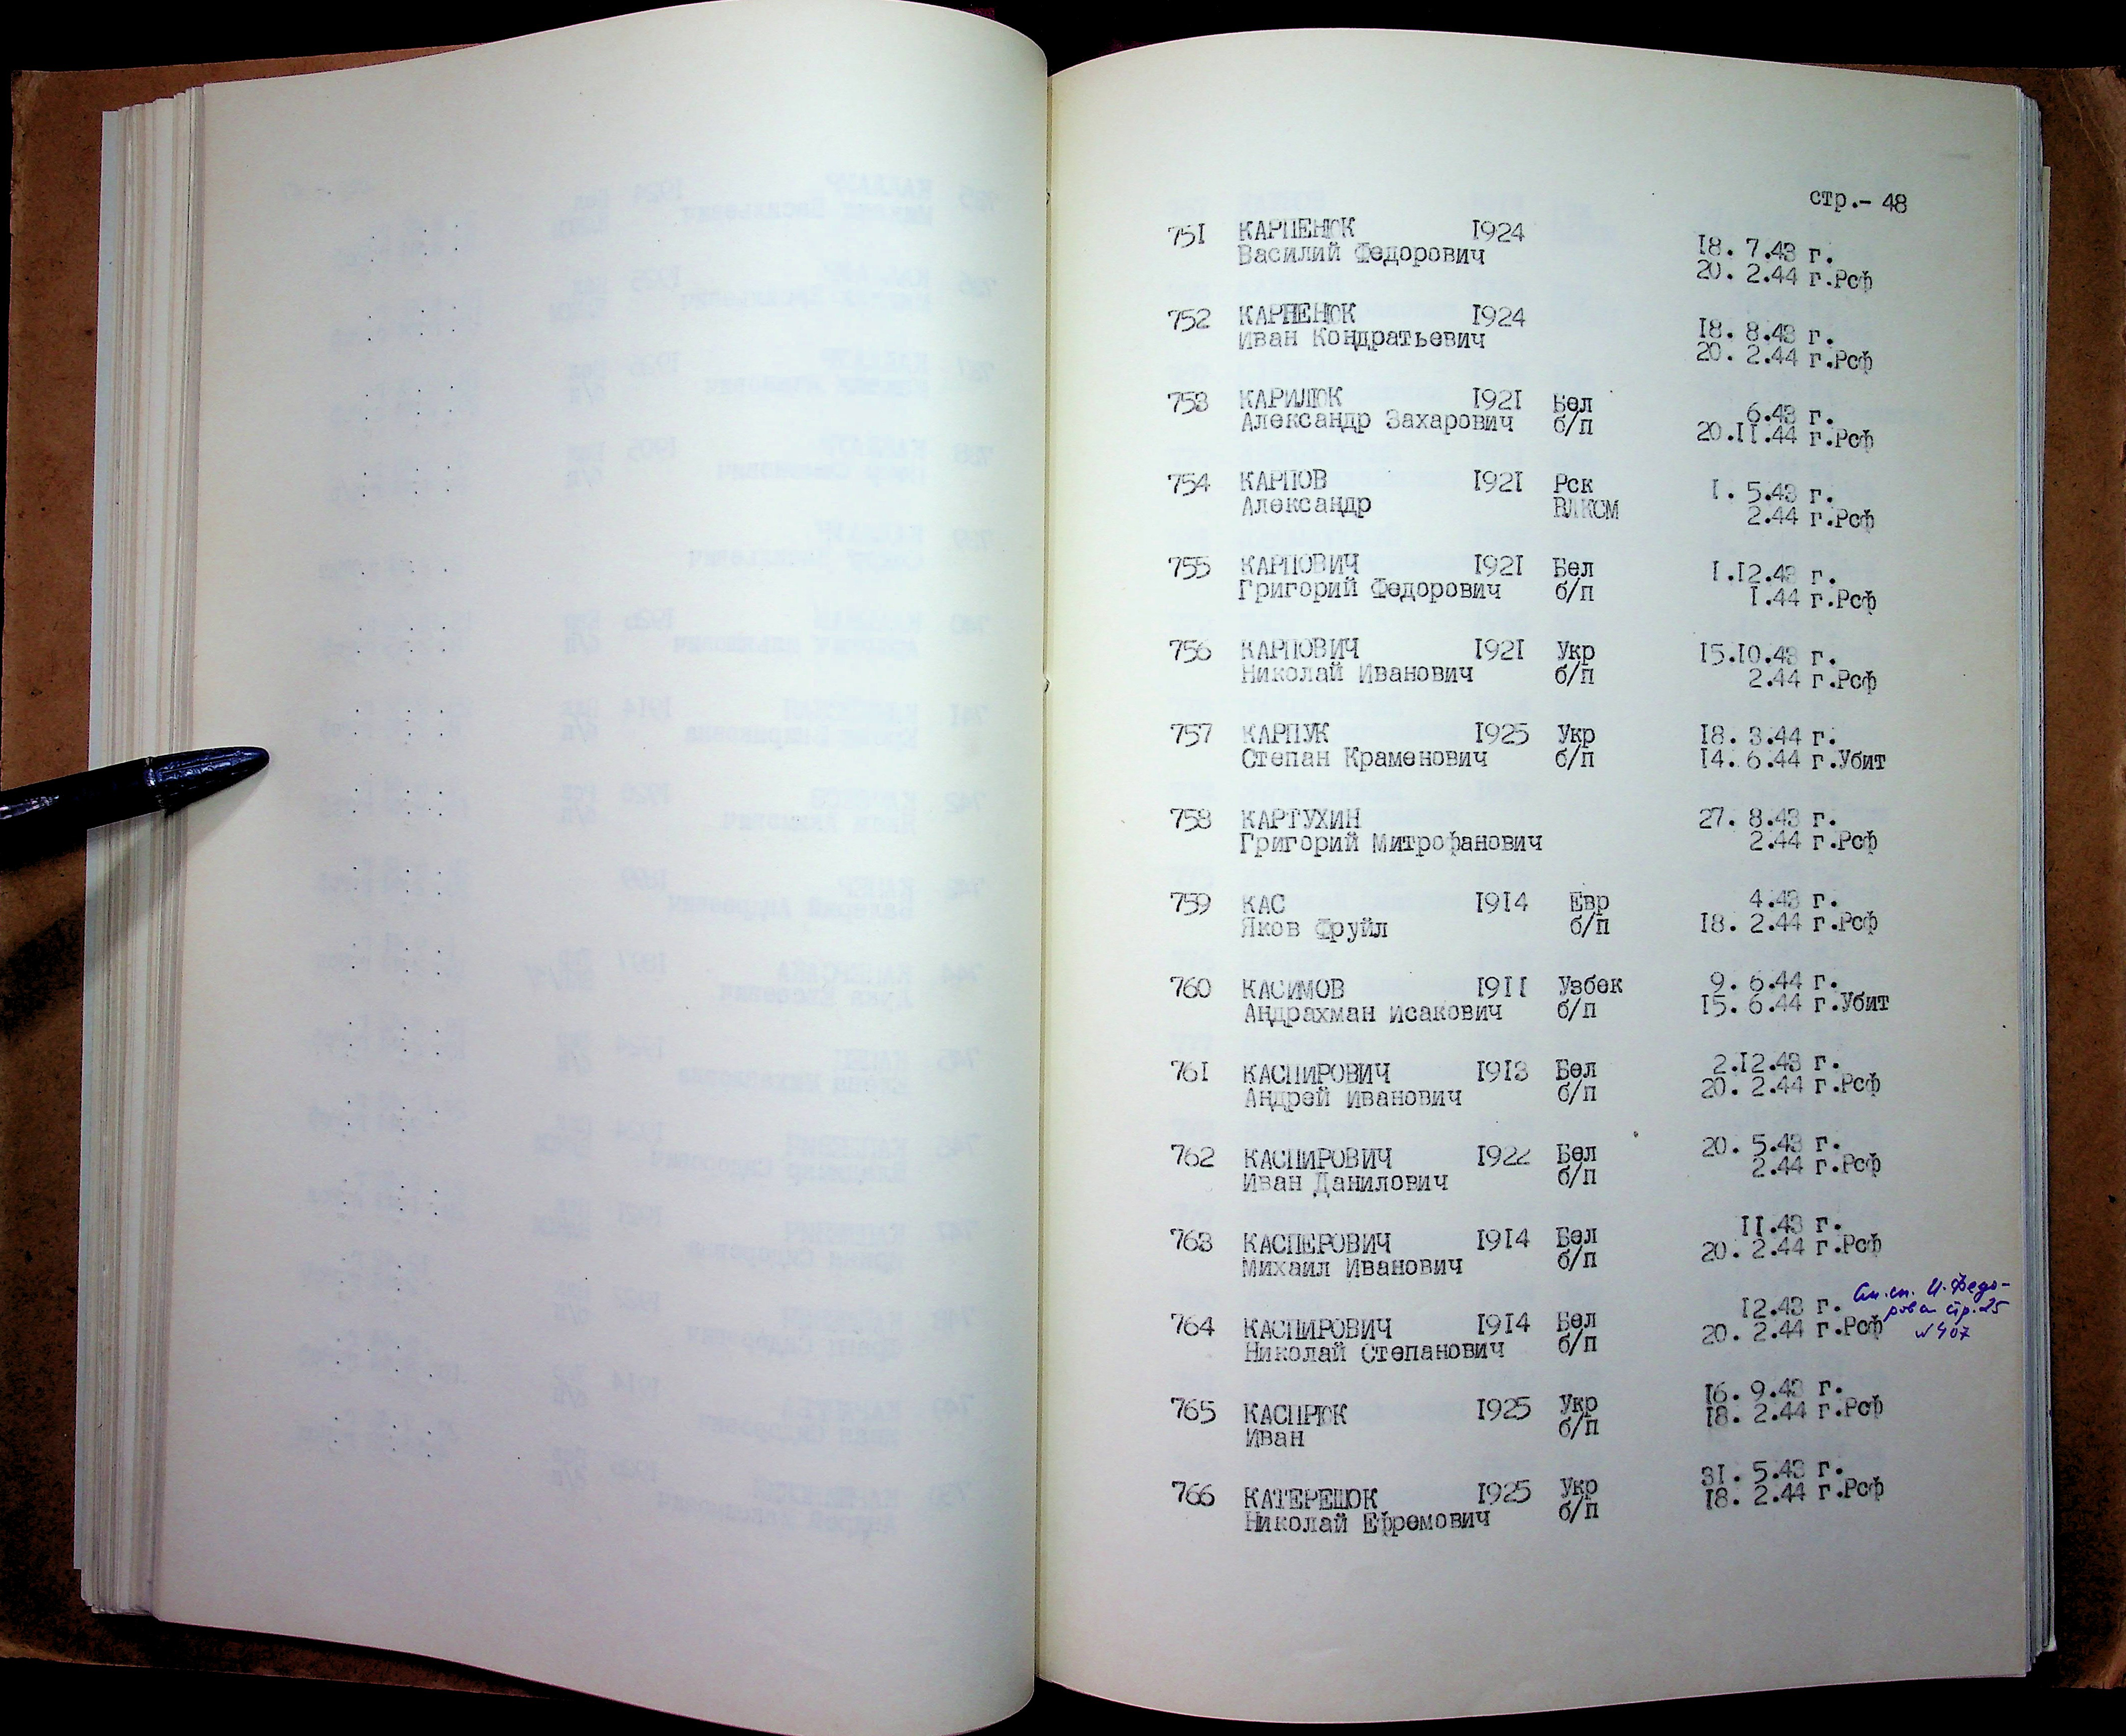 стр.- 48
751 КАРПЕНЮК 1924 18. 7.43 г.
Василий Федорович 20. 2.44 г.Рсф
752 КАРПЕНЮК 1924 18. 8.43 г.
Иван Кондратьевич 20. 2.44 г.Рсф
753 КАРИЛЮК 1921 Бел 6.43 г.
Александр Захарович б/п 20.11.44 г.Рсф
754 КАРПОВ 1921 Рск 1. 5.43 г.
Александр ВЛКСМ 2.44 г.Рсф
755 КАРПОВИЧ 1921 Бел 1.12.43 г.
Григорий Федорович б/п 1.44 г.Рсф
756 КАРПОВИЧ 1921 Укр 15.10.43 г.
Николай Иванович б/п 2.44 г.Рсф
757 КАРПУК 1925 Укр 18. 3.44 г.
Степан Краменович б/п 14. 6.44 г.Убит
758 КАРТУХИН 27. 8.43 г.
Григорий Митрофанович 2.44 г.Рсф
759 КАС 1914 Евр 4.43 г.
Яков Фруйл б/п 18. 2.44 г.Рсф
760 КАСИМОВ 1911 Узбек 9. 6.44 г.
Андрахман Исакович б/п 15. 6.44 г.Убит
761 КАСПИРОВИЧ 1913 Бел 2.12.43 г.
Андрей Иванович б/п 20. 2.44 г.Рсф
762 КАСПИРОВИЧ 1922 Бел 20. 5.43 г.
Иван Данилович б/п 2.44 г.Рсф
763 КАСПЕРОВИЧ 1914 Бел 11.43 г.
Михаил Иванович б/п 20. 2.44 г.Рсф
764 КАСПИРОВИЧ 1914 Бел 12.43 г.
Николай Степанович б/п 20. 2.44 г.Рсф
См.сп. И.Федо-
рова стр.25
№407
765 КАСПРЮК 1925 Укр 16. 9.43 г.
Иван б/п 18. 2.44 г.Рсф
766 КАТЕРЕШОК 1925 Укр 31. 5.43 г.
Николай Ефремович б/п 18. 2.44 г.Рсф